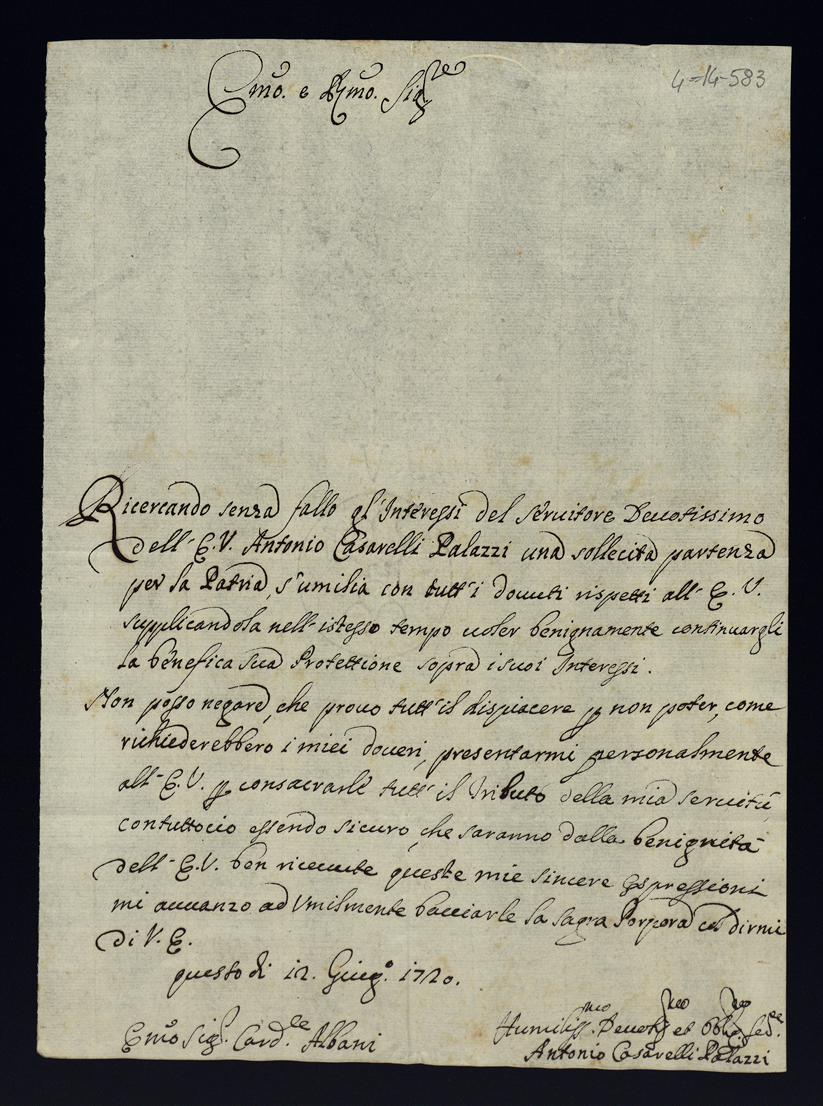 4-14-583
Emo. e Rmo. Sigre
Ricercando senza fallo gl'Interessi del servitore Devotissimo
dell'E.V. Antonio Casarelli Palazzi una sollecita partenza
per la Patria, s'umilia con tutt'i dovuti rispetti all'E.V.
supplicandola nell'istesso tempo voler benignamente continuargli
la benefica sua Protettione sopra i suoi Interessi.
Non posso negare, che provo tutt'il dispiacere p non poter, come
richiederebbero i miei doveri, presentarmi personalmente
all'E.V. p consacrarle tutt'il Tributo della mia servitù,
contuttociò essendo sicuro, che saranno dalla benignità
dell'E.V. ben ricevute queste mie sincere Espressioni
mi avvanzo ad Umilmente bacciarle la sagra Porpora, ed dirmi
di V.E.
questo di 12. Giugo. 1720.
Emo Sigr. Cardle Albani
Humiliss.mo Devotis.mo et Obblig.mo
Antonio Casarelli Palazzi